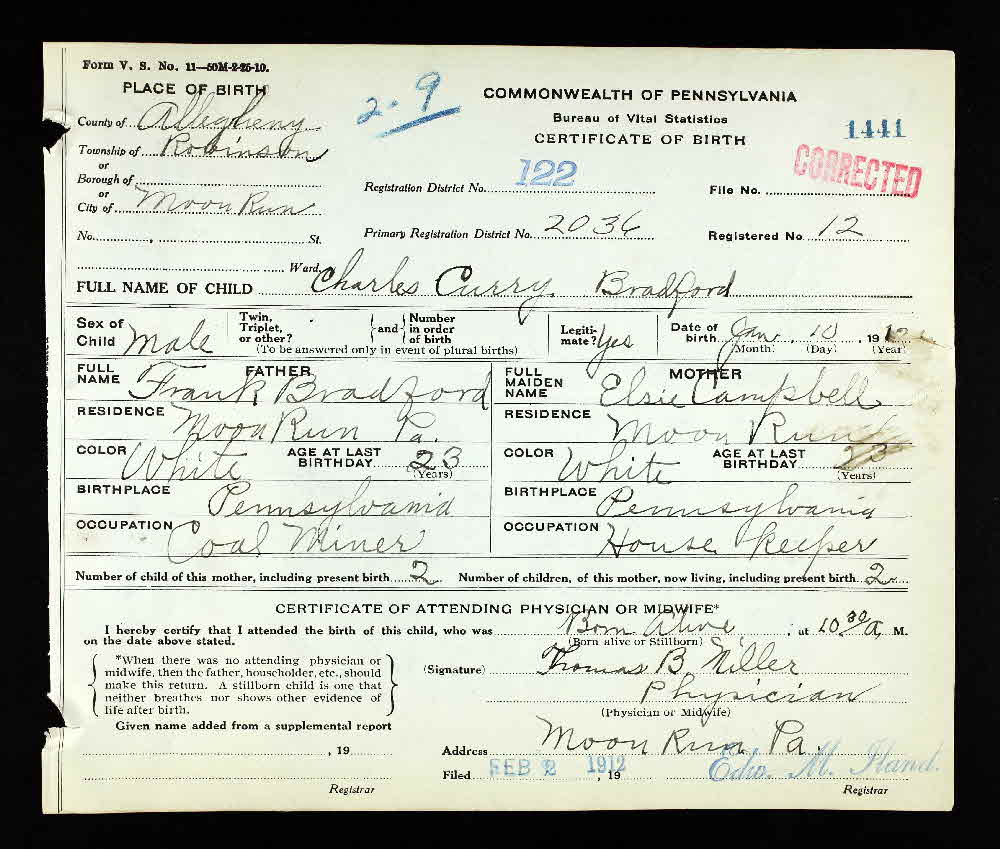 Form V. S. No. 11—50M-2-25-10.
PLACE OF BIRTH
2-9
COMMONWEALTH OF PENNSYLVANIA
Bureau of Vital Statistics
CERTIFICATE OF BIRTH
1441
CORRECTED
County of Allegheny
Township of Robinson
or
Borough of
or
City of Moon Run
Registration District No. 122
File No.
No. , St.
Primary Registration District No. 2036
Registered No. 12
Ward
FULL NAME OF CHILD Charles Curry Bradford
Sex of Child Male
Twin, Triplet, or other?
and
Number in order of birth
(To be answered only in event of plural births)
Legiti-mate? Yes
Date of birth Jan. 10, 1912
(Month) (Day) (Year)
FATHER
FULL NAME Frank Bradford
RESIDENCE Moon Run Pa.
COLOR White
AGE AT LAST BIRTHDAY 23
(Years)
BIRTHPLACE Pennsylvania
OCCUPATION Coal Miner
MOTHER
FULL MAIDEN NAME Elsie Campbell
RESIDENCE Moon Run
COLOR White
AGE AT LAST BIRTHDAY 23
(Years)
BIRTHPLACE Pennsylvania
OCCUPATION House keeper
Number of child of this mother, including present birth 2 Number of children, of this mother, now living, including present birth 2
CERTIFICATE OF ATTENDING PHYSICIAN OR MIDWIFE*
I hereby certify that I attended the birth of this child, who was Born Alive, at 10 30 A. M.
on the date above stated. (Born alive or Stillborn)
*When there was no attending physician or
midwife, then the father, householder, etc., should
make this return. A stillborn child is one that
neither breathes nor shows other evidence of
life after birth.
(Signature) Thomas B. Miller
Physician
(Physician or Midwife)
Given name added from a supplemental report
, 19
Registrar
Address Moon Run Pa.
Filed FEB 2 1912, 19
Edw. M.
Registrar